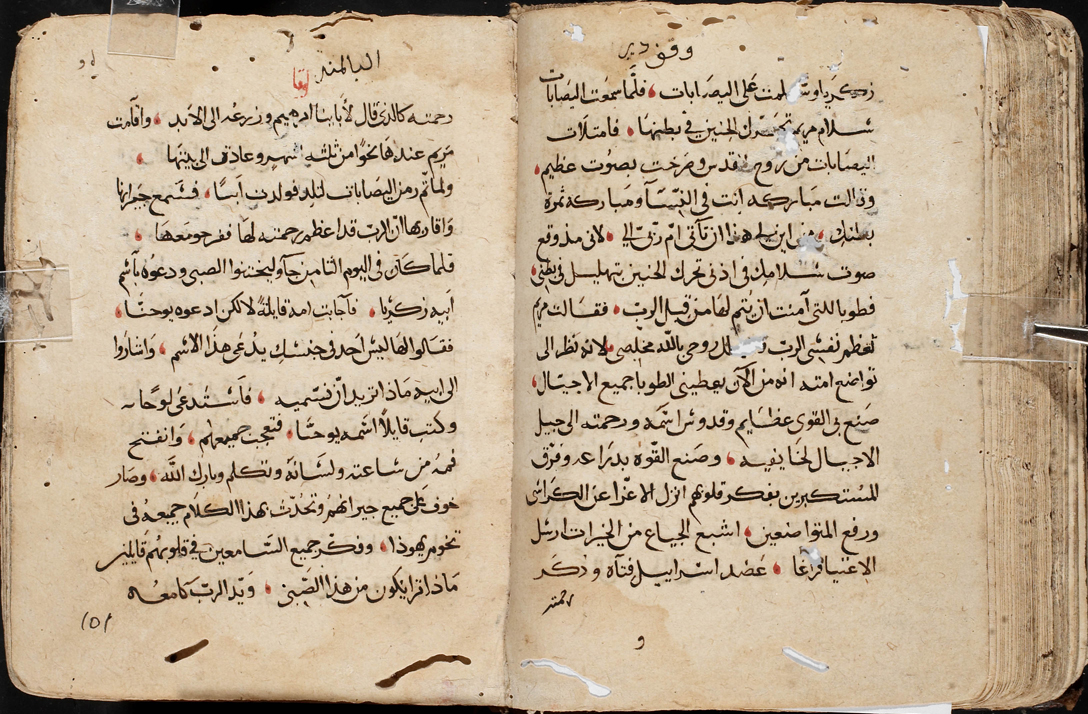 وقف دير
زكريا وسلمت على اليصابات فلما سمعت اليصابات
سلام مريم تحرك الجنين في بطنها فامتلات
اليصابات من روح القدس وصرخت بصوت عظيم
وقالت مباركه انت في النسآ ومباركه ثمرة
بطنك من اين لي هذا ان تآتي ام ربي الي لاني مذ وقع
صوت سلامك في اذني تحرك الجنين بتهليل في بطني
فطوبا للتي آمنت ان يتم لها من قبل الرب فقالت مريم
تعظم نفسي الرب روحي بالله مخلصي لانه نظر الى
تواضع امته انه من الآن يعطيني الطوبا جميع الاجيال
صنع بي القوي عظايم وقدوس اسمه ورحمته الى جيل
الاجيال لخايفيه وصنع القوه بذراعه وفرق
المستكبرين بفكر قلوبهم انزل الاعزا عن الكراسي
ورفع المتواضعين اشبع الجياع من الخيرات ارسل
الاغنيا فرغا عضد اسراييل فتاه وذكر
رحمته
و
البالمند
لوقا
رحمته كالذي قال لأباينا ابرهيم وزرعه الى الابد واقامت
مريم عندها نحوًا من ثلثة اشهر وعادت الى بيتها
ولما تم زمن اليصابات لتلد فولدت ابنًا فسمع جيرانها
واقاربها ان الرب قد اعظم رحمته لها ففرحو معها
فلما كان في اليوم الثامن جآو ليختنوا الصبي ودعوه باسم
ابيه زكريا فآجابت امه قايلةً لا لكن ادعوه يوحنا
فقالوا لها ليس احد في جنسك يدعى هذا الاسم واشاروا
الى ابيه ماذا تريد ان نسميه فاستدعى لوحًا
وكتب قايلاً اسمه يوحنا فتعجب جميعهم وانفتح
فمه من ساعته ولسانه وتكلم وبارك الله وصار
خوف على جميع جيرانهم وتحدث بهذا الكلام جميعه في
تخوم يهوذا وفكر جميع السامعين في قلوبهم قايلين
ماذا ترا يكون من هذا الصبي ويد الرب كا معه